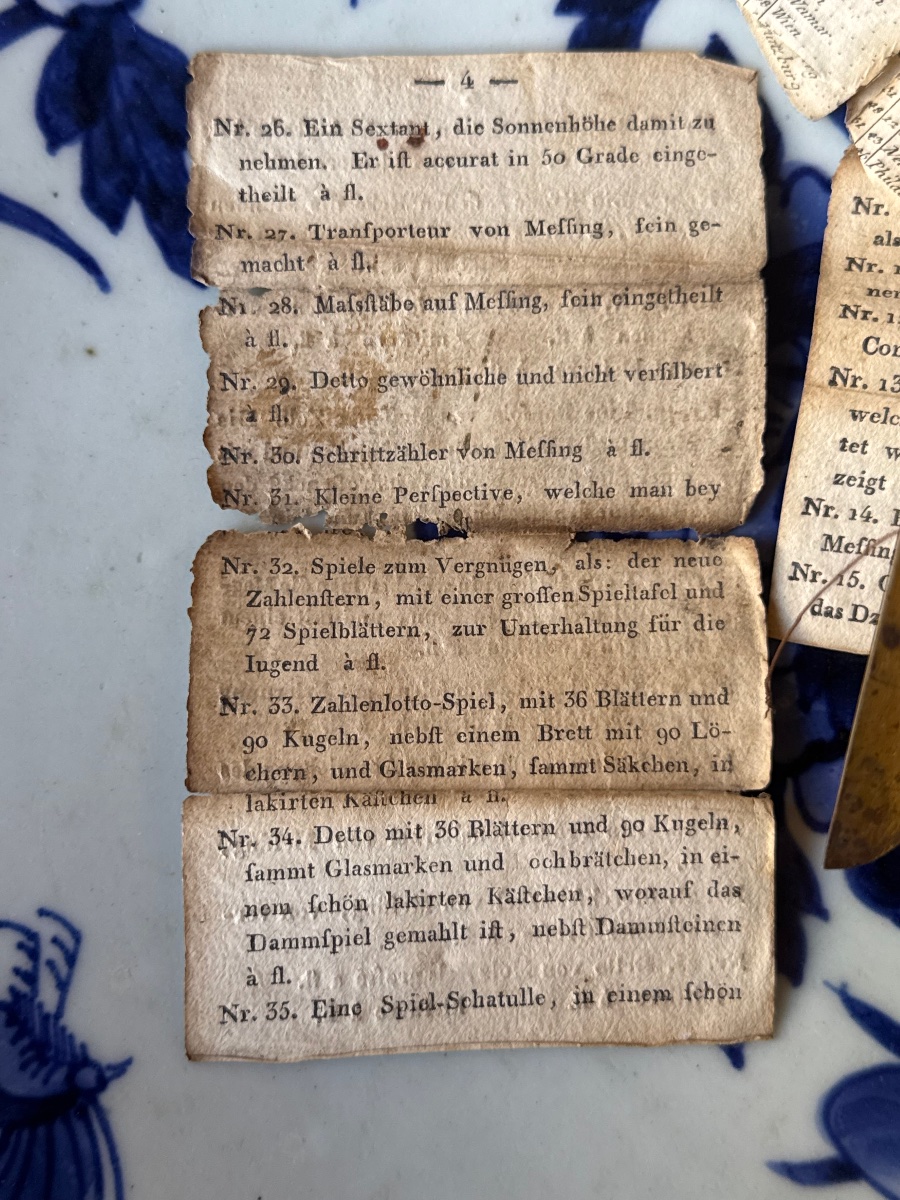 — 4 —
Nr. 26. Ein Sextant, die Sonnenhöhe damit zu
nehmen. Er iſt accurat in 50 Grade einge-
theilt à fl.
Nr. 27. Tranſporteur von Meſſing, fein ge-
macht à fl.
Nr. 28. Maſsſtäbe auf Meſſing, fein eingetheilt
à fl.
Nr. 29. Detto gewöhnliche und nicht verſilbert
à fl.
Nr. 30. Schrittzähler von Meſſing à fl.
Nr. 31. Kleine Perſpective, welche man bey
Nr. 32. Spiele zum Vergnügen, als: der neue
Zahlenſtern, mit einer groſſen Spieltafel und
72 Spielblättern, zur Unterhaltung für die
Iugend à fl.
Nr. 33. Zahlenlotto-Spiel, mit 36 Blättern und
90 Kugeln, nebſt einem Brett mit 90 Lö-
chern, und Glasmarken, ſammt Säkchen, in
lakirten Käſtchen à fl.
Nr. 34. Detto mit 36 Blättern und 90 Kugeln,
ſammt Glasmarken und ochbrätchen, in ei-
nem ſchön lakirten Käſtchen, worauf das
Dammſpiel gemahlt iſt, nebſt Dammſteinen
à fl.
Nr. 35. Eine Spiel-Schatulle, in einem ſchön
Weimar.
Wien.
Nr.
als
Nr. 1
ner
Nr. 1
Con
Nr. 13
welc
tet w
zeigt
Nr. 14.
Meſſin
Nr. 15.
das Da